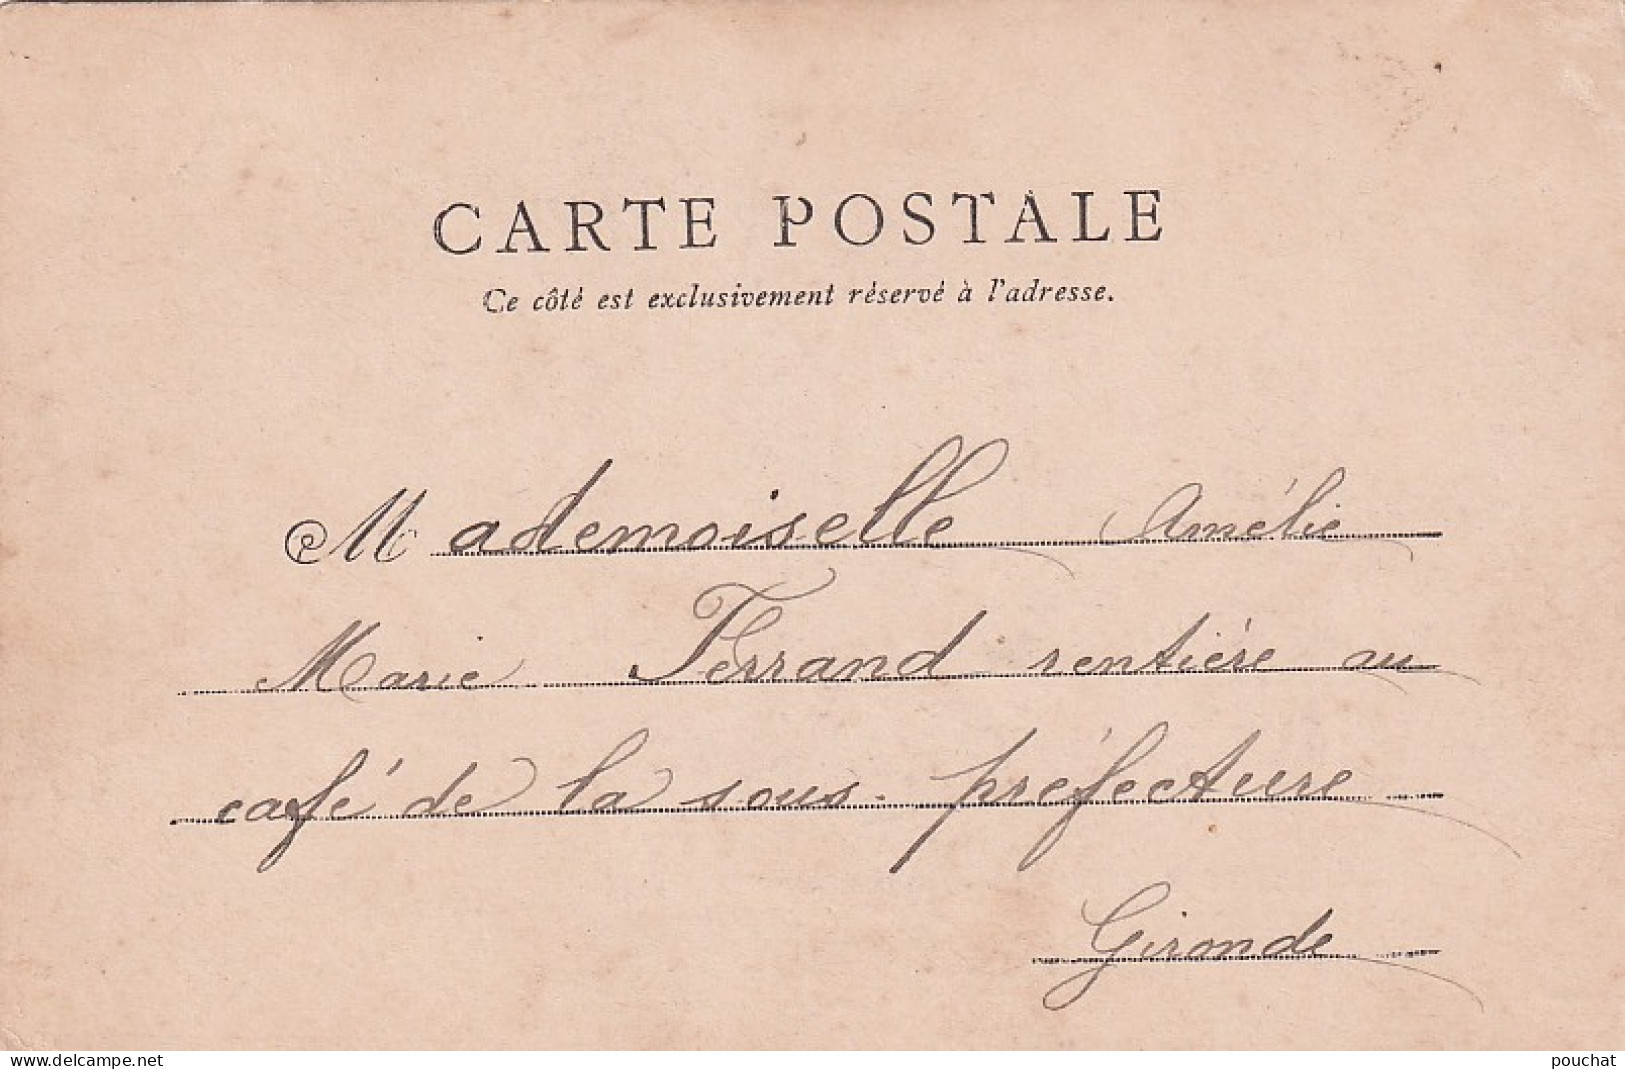 CARTE POSTALE
Ce côté est exclusivement réservé à l'adresse.
Mademoiselle Amélie
Marie Ferrand rentière au
café de la sous-préfecture
Gironde
www.delcampe.net
pouchat